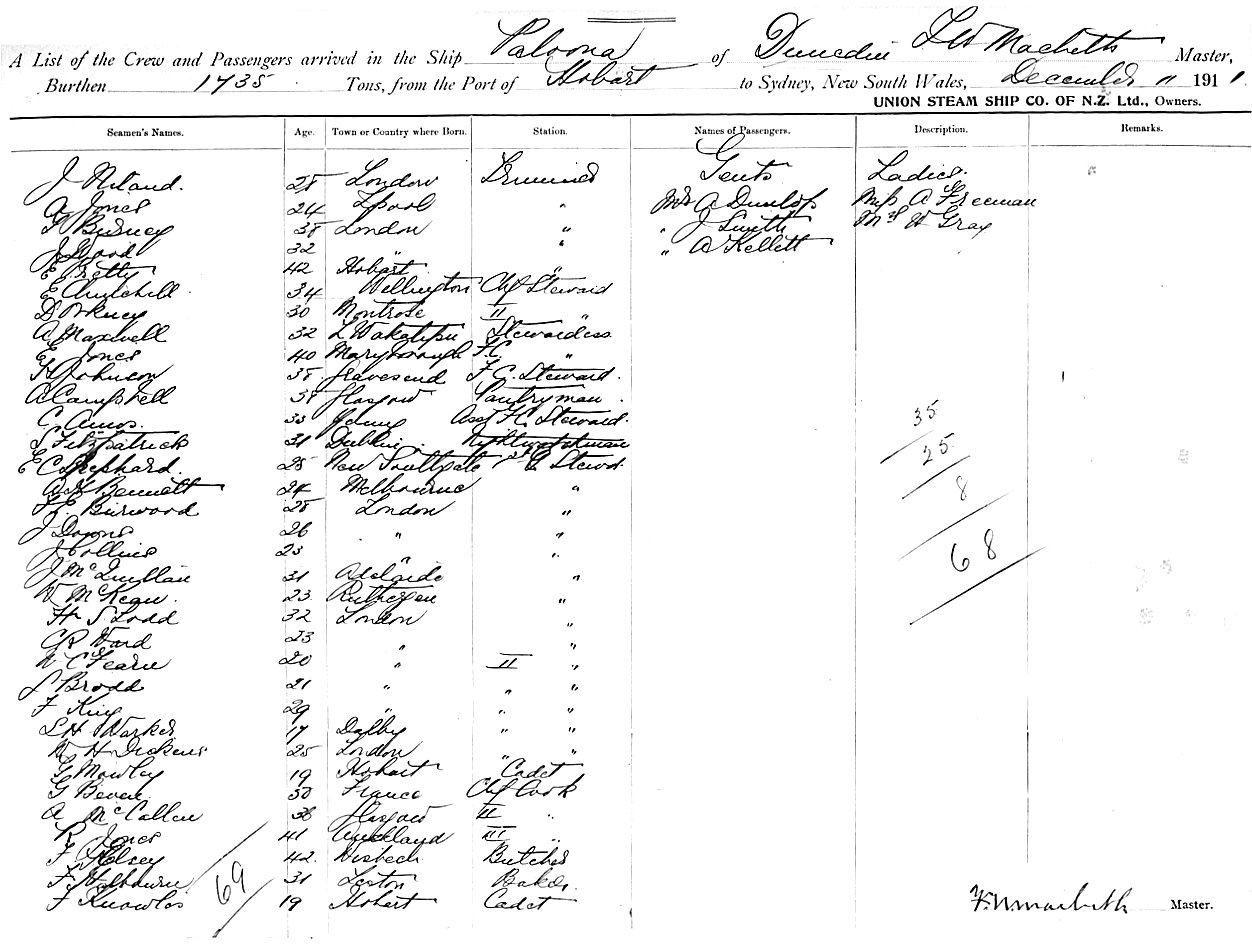 A List of the Crew and Passengers arrived in the Ship Paloona of Dunedin Macbeth Master,
Burthen 1735 Tons, from the Port of Hobart to Sydney, New South Wales, December 11 1911
UNION STEAM SHIP CO. OF N.Z. Ltd., Owners.
Seamen's Names. Age. Town or Country where Born. Station. Names of Passengers. Description. Remarks.
Gents Ladies.
J Niland. 28 London Trimmer
A Jones 24 Lpool " Mr A Dunlop Miss A Freeman
Burney 38 London " " J Smith Mrs W Gray
J Wood 32 " " " A Kellett
E Pretty 42 Hobart "
E Churchill 34 Wellington Chf Steward
30 Montrose II "
A Maxwell 32 L Wakatipu Stewardess
E Jones 40 Maryborough F.C. "
H Johnson 38 Gravesend F.C. Steward.
A Campbell 38 Glasgow Pantryman
C Amos. 33 Asst F.C. Steward.
S Fitzpatrick 31 Dublin Nightwatchman
E C Shephard. 25 New Southgate Stewd.
A H Bennett 24 Melbourne "
Burwood 28 London "
J Downs 26 " "
J Collins 23 " "
J McQuillan 31 Adelaide "
W McKean. 23 Rutherglen "
H S Todd 32 London "
C R Ward 23 " "
W C Fearn 20 " II "
S Brodd 21 " " "
F King 29 " " "
L H Warker 17 Dalby " "
W H Dickens 25 London " "
G Mowley 19 Hobart Cadet
G Beven 30 France Chf Cook
A McCallen 38 Glasgow II "
R Jones 41 Auckland III "
F Kelsey 42. Wisbech Butcher
F Welbourn 31 Baker.
F Knowles 19 Hobart Cadet
69
35
25
8
68
Macbeth Master.